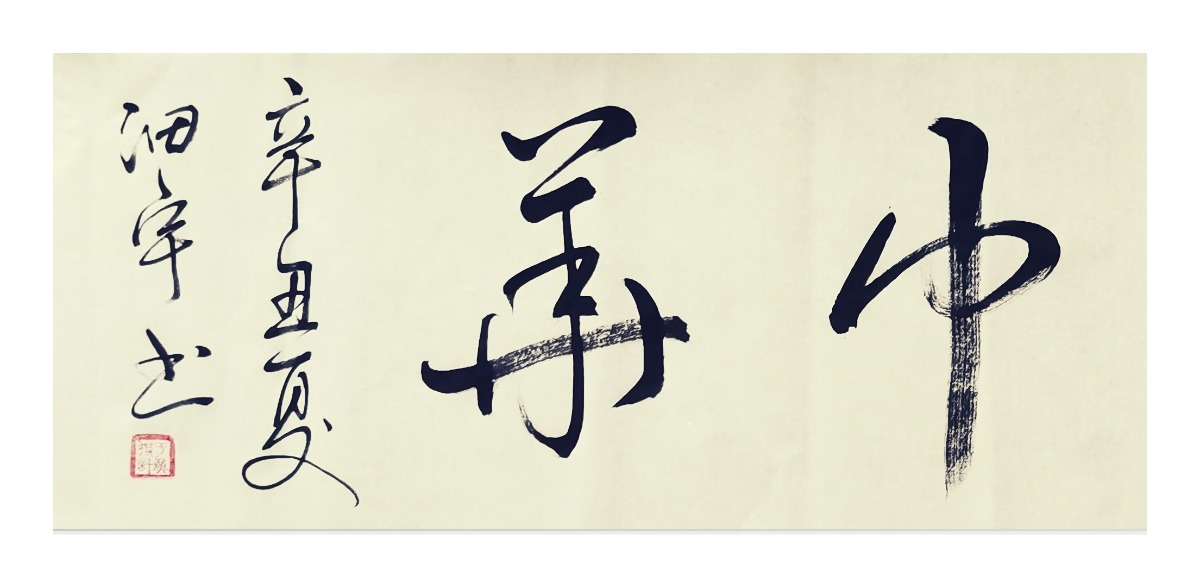 中華
辛丑夏
宇书